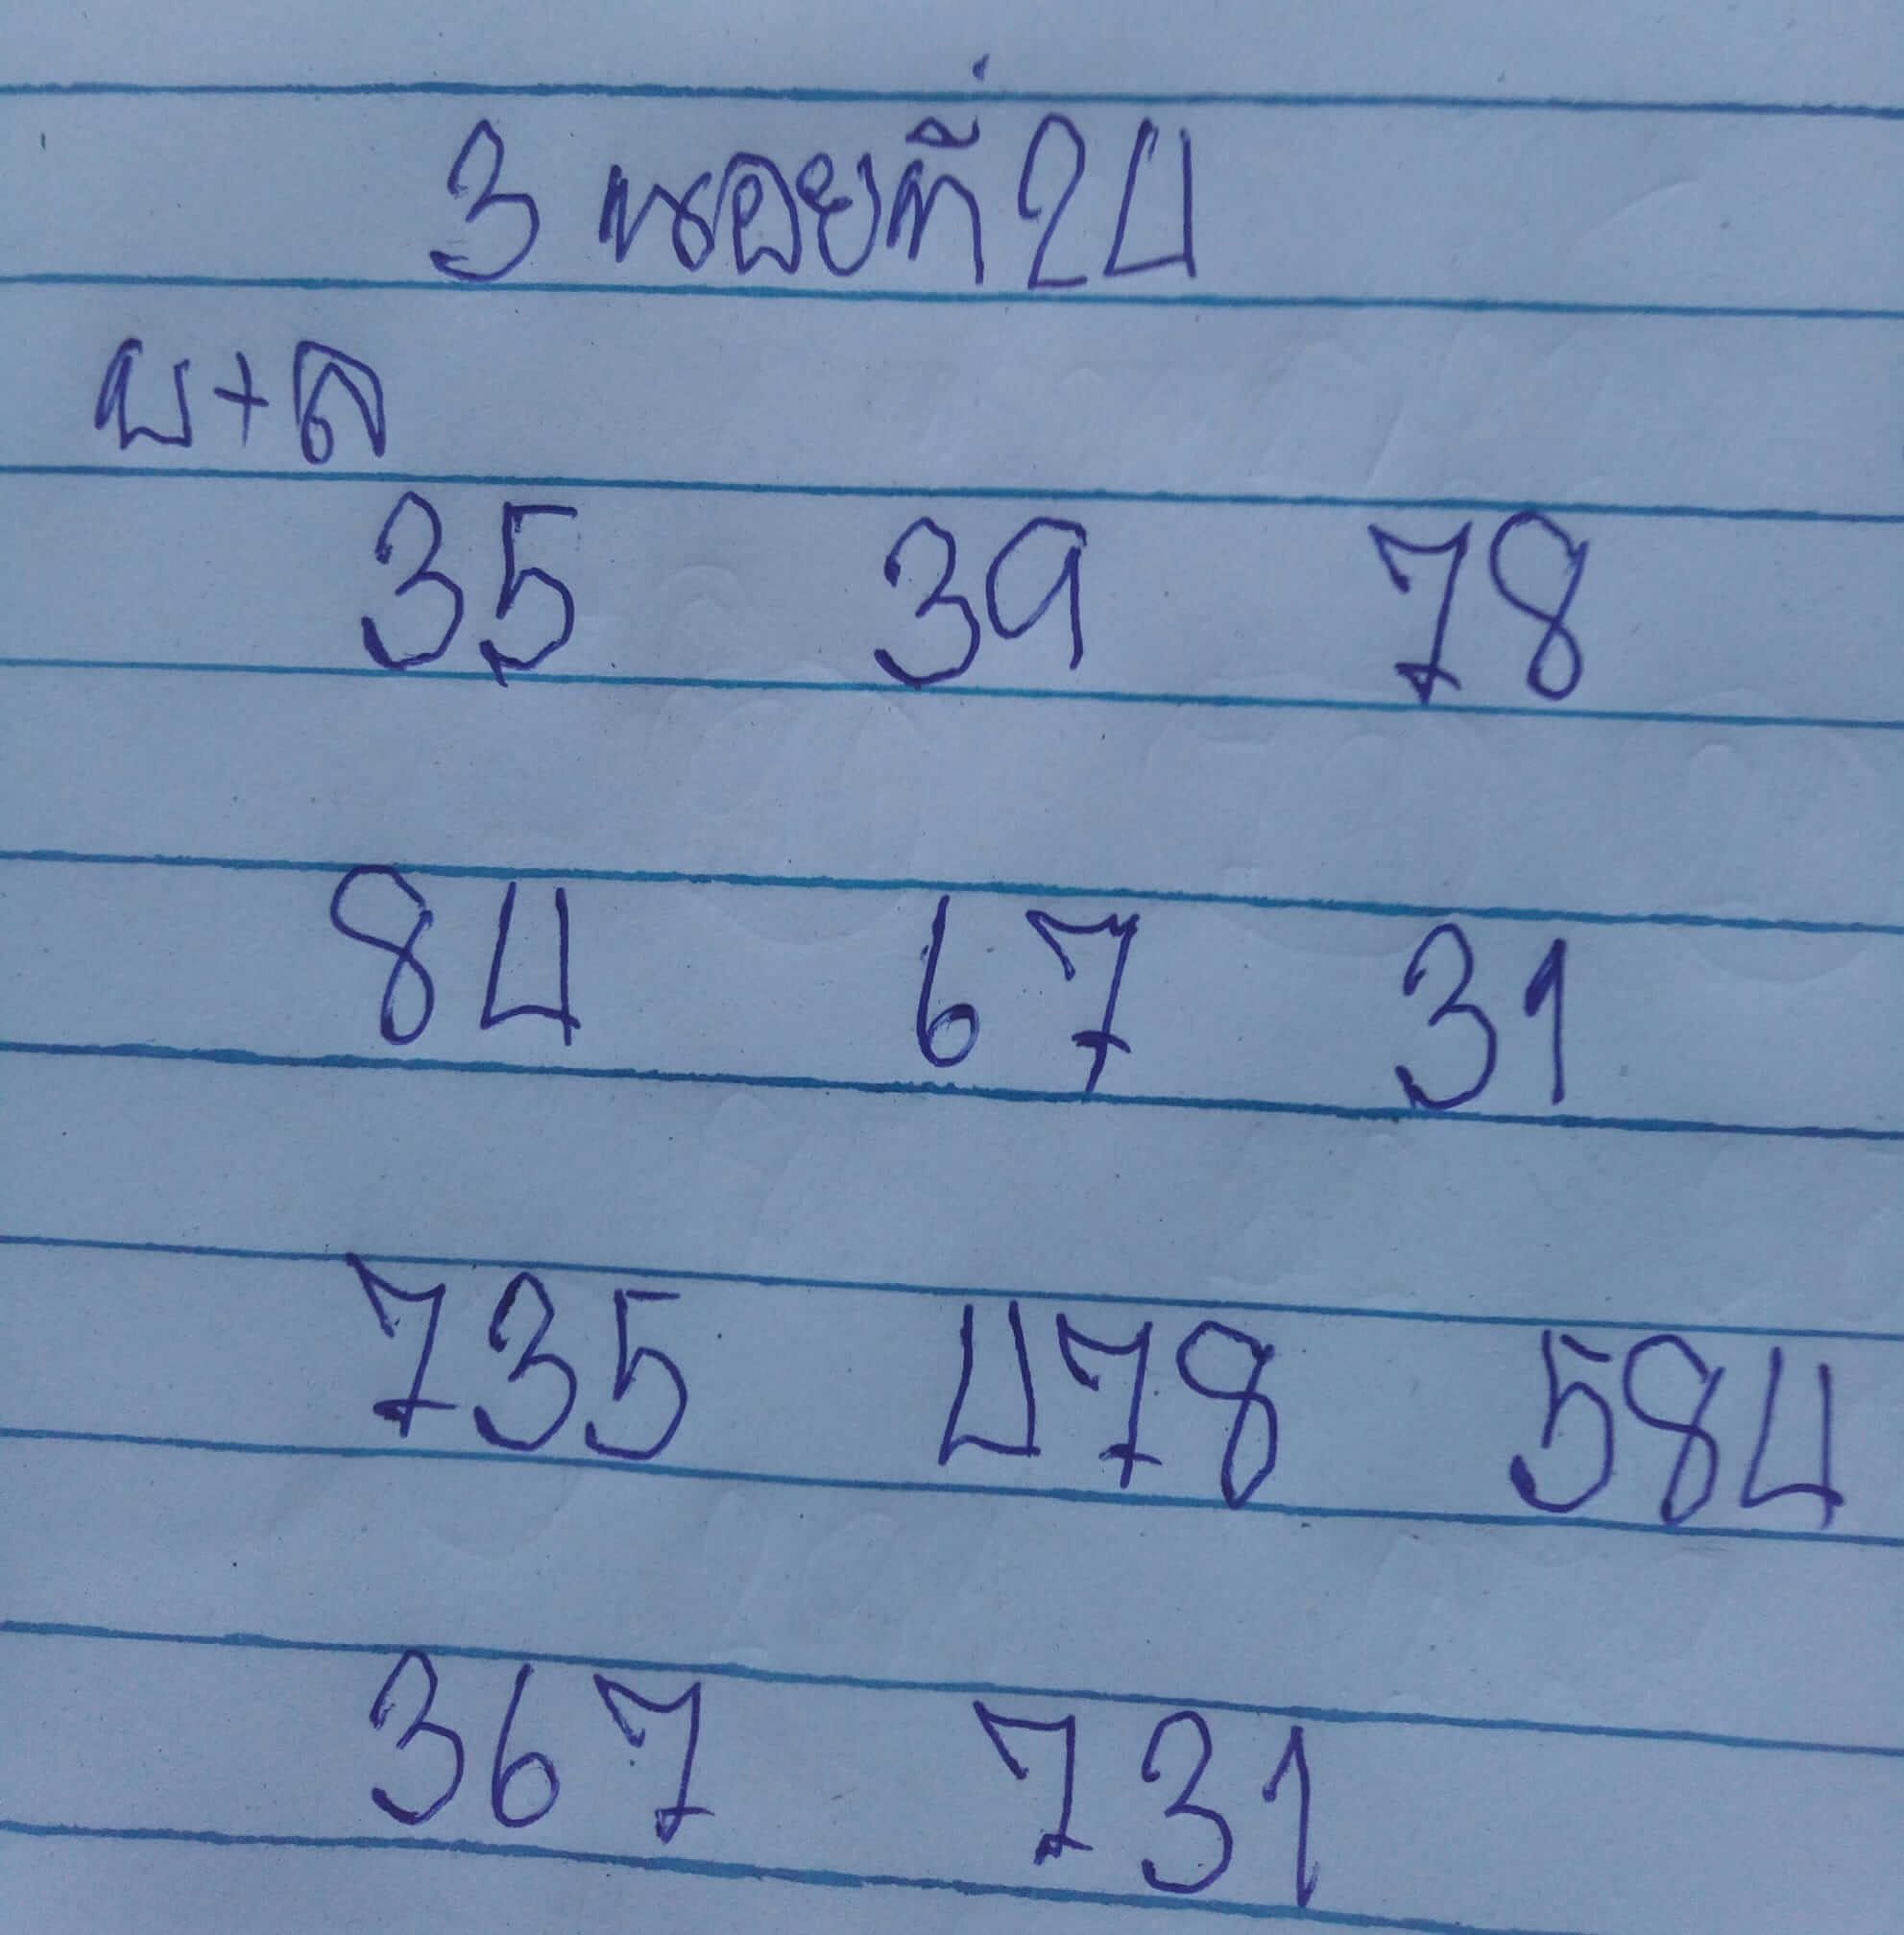 3 หอยที่ 24
บ+ล
35 39 78
84 67 31
735 478 584
367 731